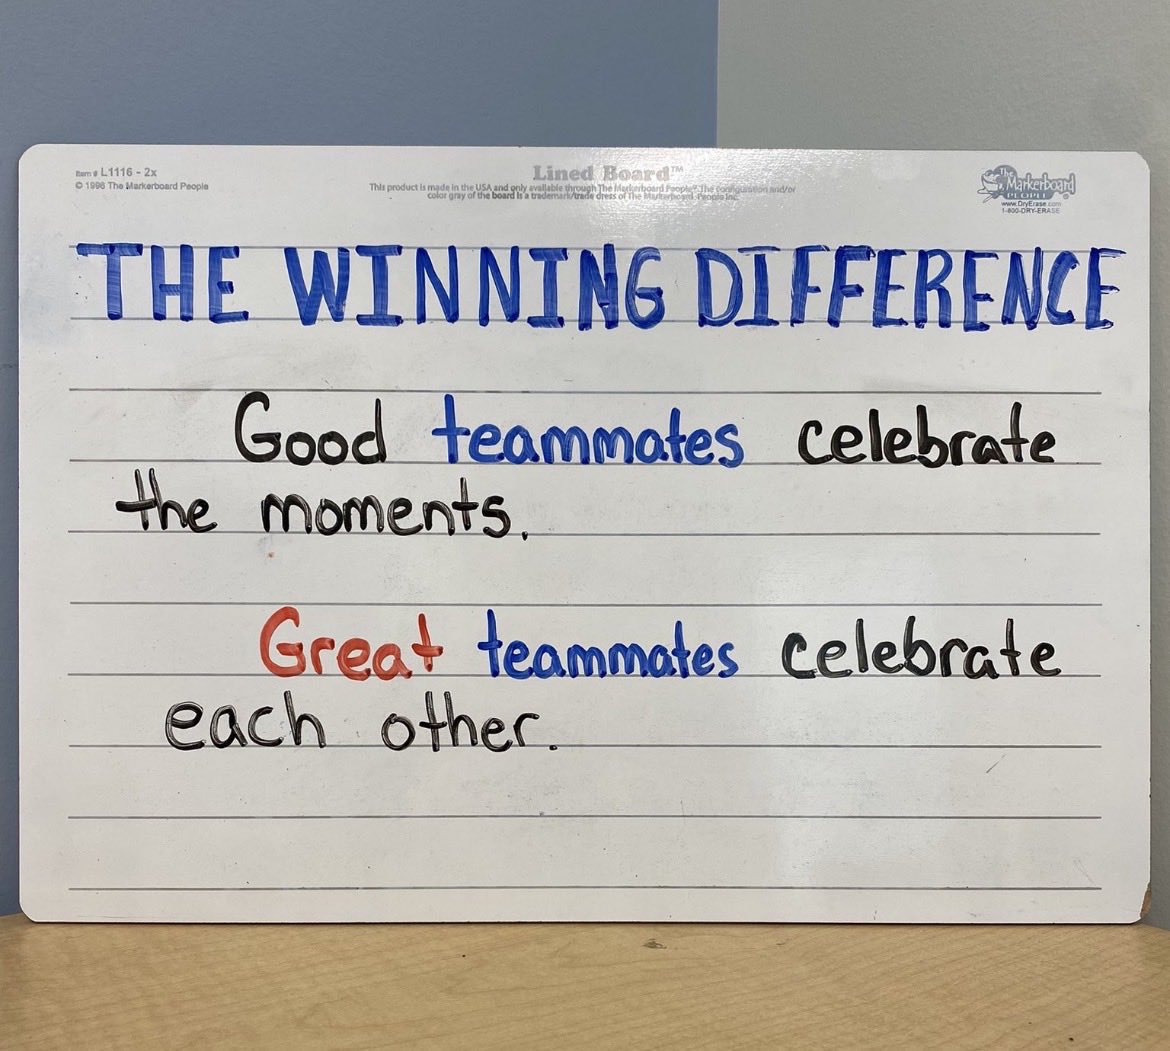 Item # L1116 - 2x
© 1998 The Markerboard People
Lined Board™
This product is made in the USA and only available through The Markerboard People® The configuration and/or
color gray of the board is a trademark/trade dress of The Markerboard People Inc.
The
Markerboard
PEOPLE
www.DryErase.com
1-800-DRY-ERASE
THE WINNING DIFFERENCE
Good teammates celebrate
the moments.
Great teammates celebrate
each other.